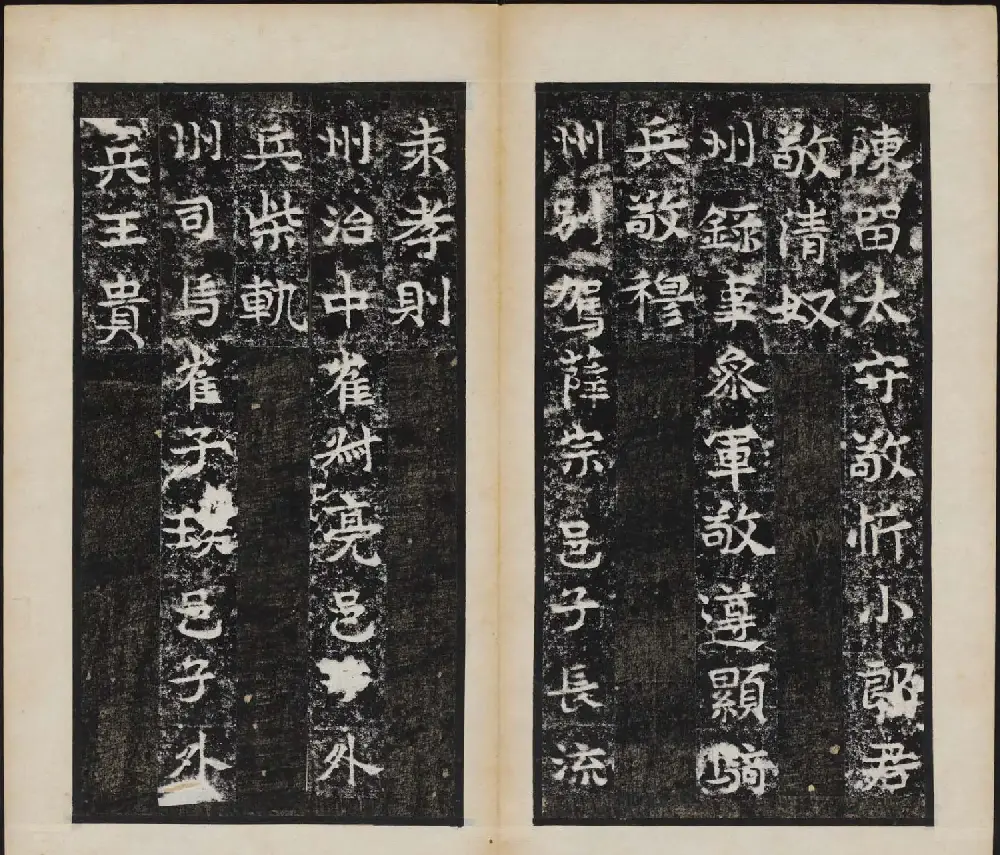 陳留太守敬忻小郎君
敬清奴
州錄事參軍敬遵顯騎
兵敬穆
州別駕薛宗邑子長流
耒孝則
州治中崔叔亮邑子外
兵柴軌
州司馬崔子瑛邑子外
兵王貴